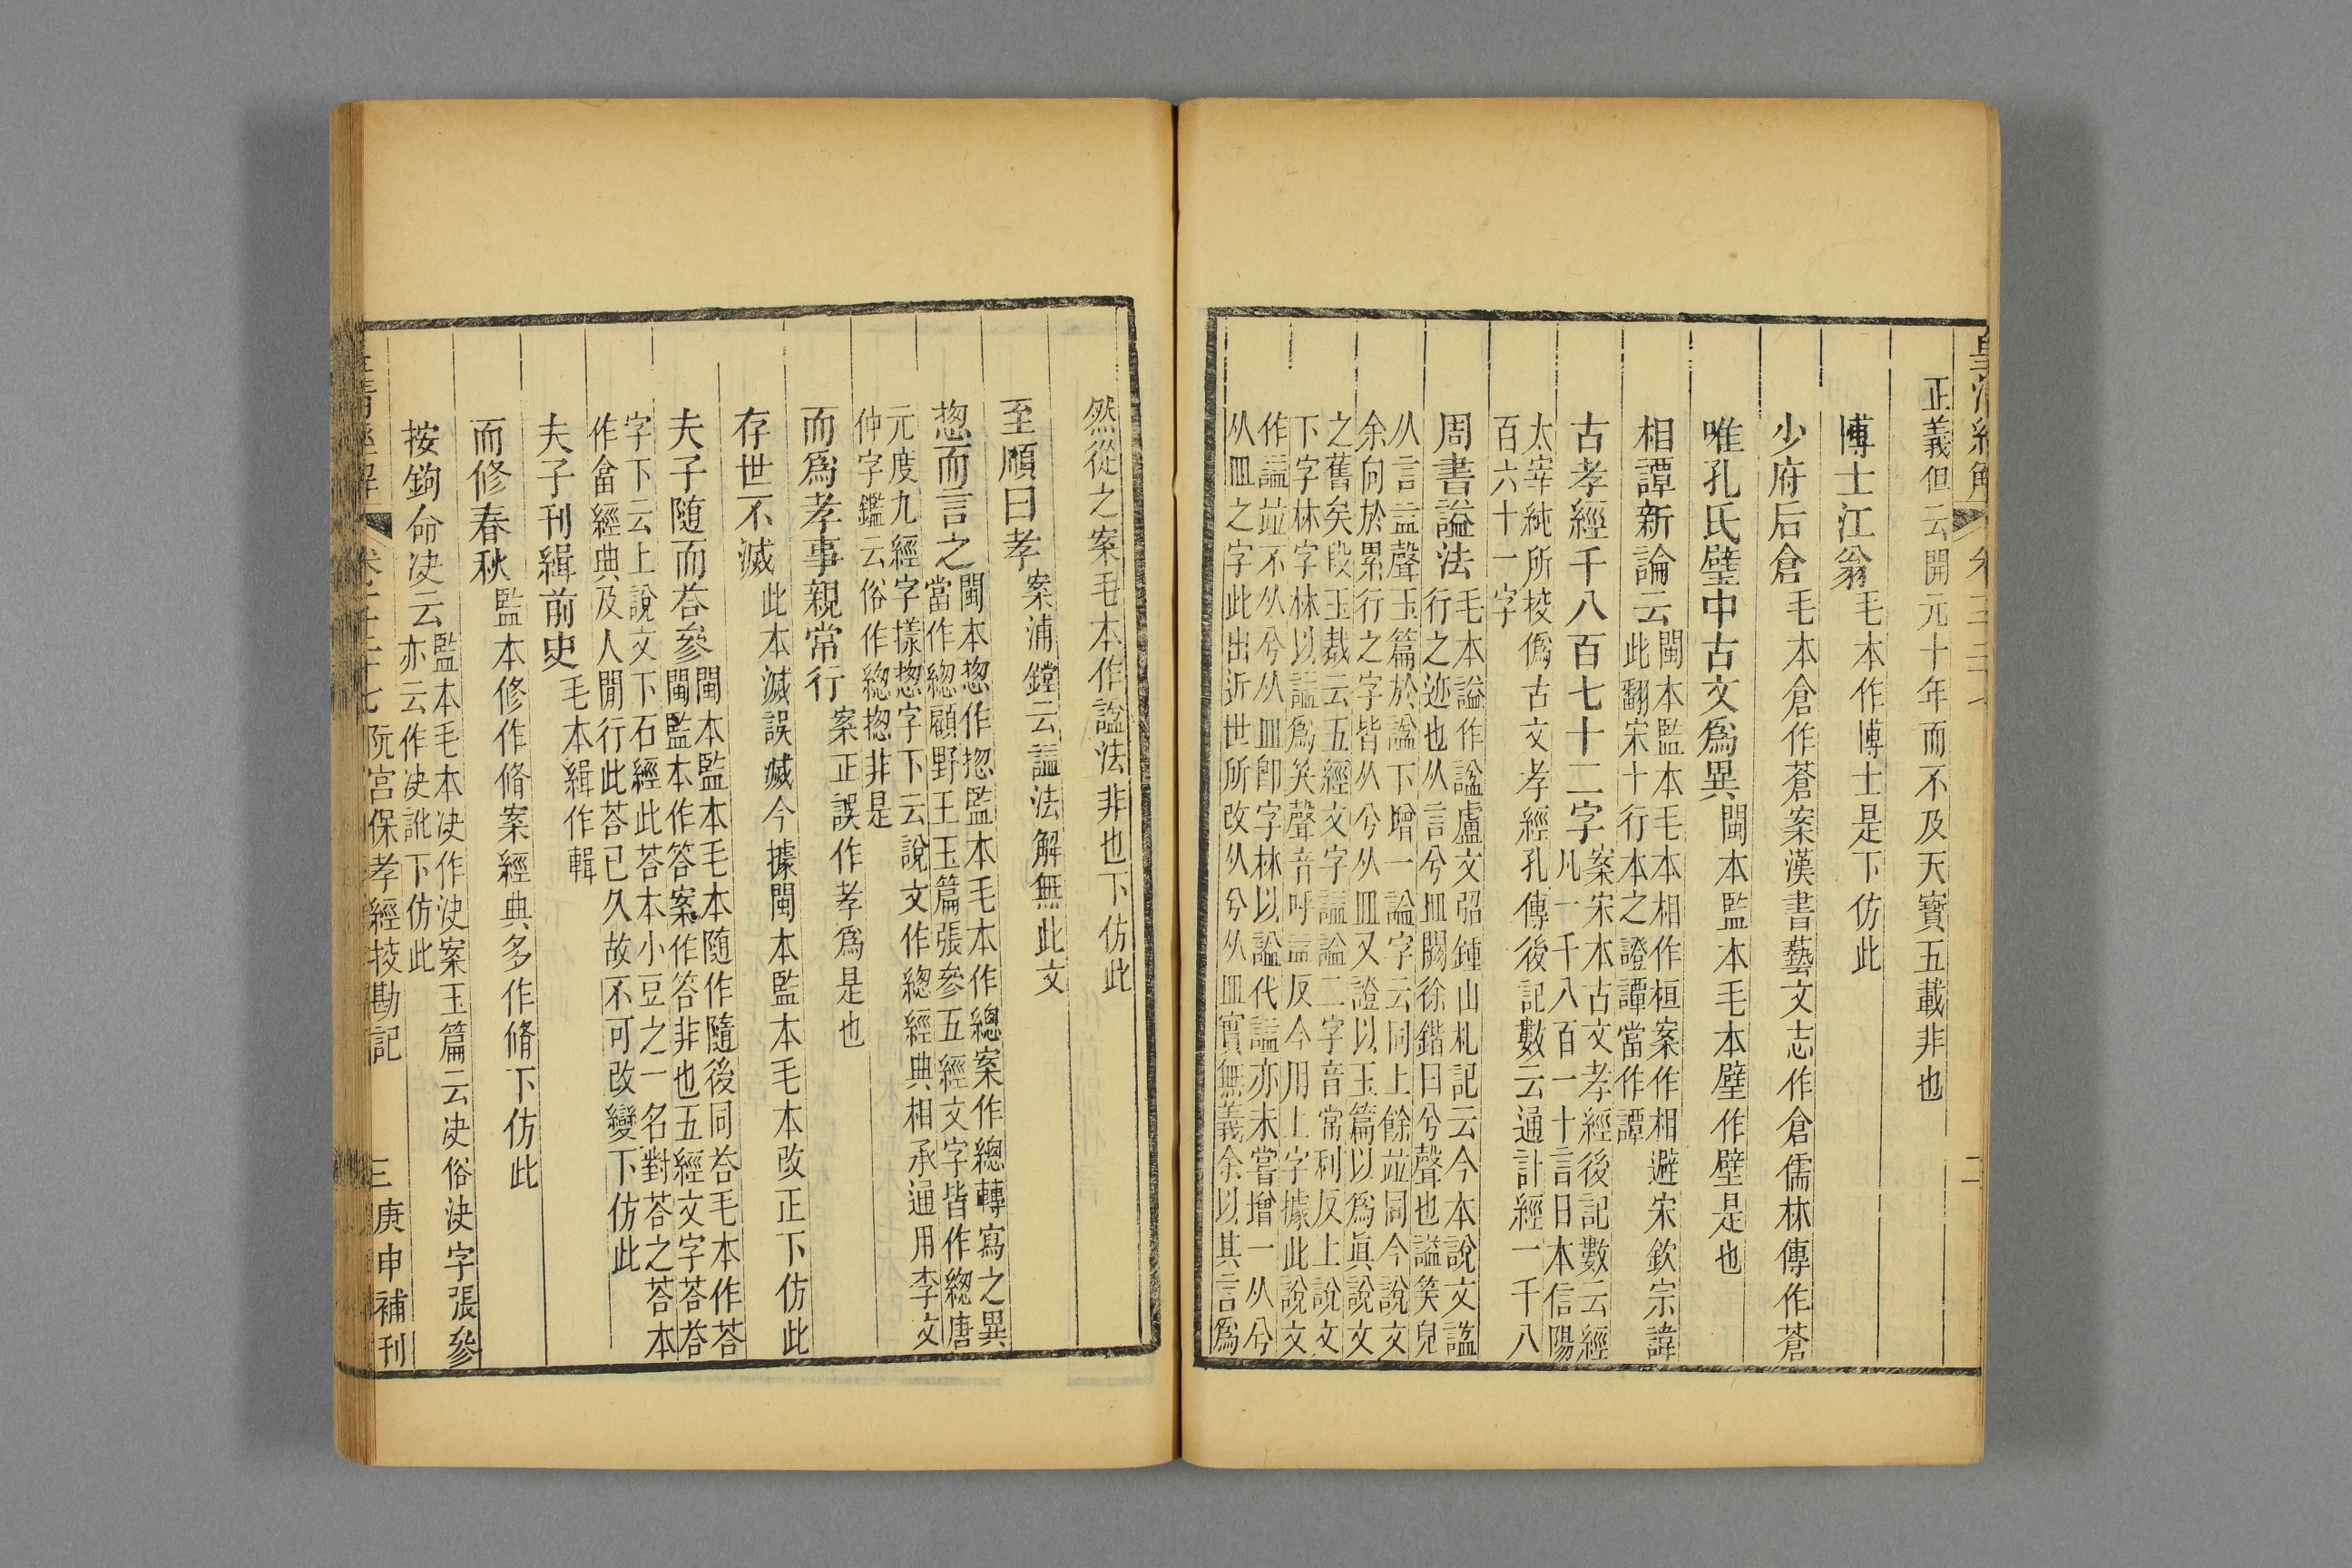 皇清經解
卷
二
正義但云開元十年而不及天寶五載非也
博士江翁毛本作博士是下仿此
少府后倉毛本倉作蒼案漢書藝文志作倉儒林傳作蒼
唯孔氏壁中古文爲異閩本監本毛本壁作壁是也
相譚新論云閩本監本毛本相作桓案作相避宋欽宗諱
此翻宋十行本之證譚當作譚
古孝經千八百七十二字案宋本古文孝經後記數云經
凡一千八百一十言日本信陽
太宰純所挍僞古文孝經孔傳後記數云通計經一千八
百六十一字
周書謚法毛本謚作諡盧文弨鍾山札記云今本說文謚
行之迹也从言兮皿闕徐鍇曰兮聲也謚笑皃
从言益聲玉篇於諡下增一諡字云同上餘並同今說文
余向於累行之字皆从兮从皿又證以玉篇以爲眞說文
之舊矣段玉裁云五經文字謚諡二字音常利反上說文
下字林字林以謚爲笑聲音呼益反今用上字據此說文
作謚並不从兮从皿卽字林以諡代謚亦未嘗增一从兮
从皿之字此出近世所改从兮从皿實無義余以其言爲
然從之案毛本作諡法非也下仿此
至順曰孝案浦鏜云謚法解無此文
惣而言之閩本惣作揔監本毛本作總案作總轉寫之異
當作總顧野王玉篇張參五經文字皆作緫唐
元度九經字㨾惣字下云說文作總經典相承通用李文
仲字鑑云俗作緫揔非是
而爲孝事親常行案正誤作孝爲是也
存世不滅此本滅誤㓕今據閩本監本毛本改正下仿此
夫子隨而荅參閩本監本毛本隨作隨後同荅毛本作荅
閩監本作答案作答非也五經文字荅荅
字下云上說文下石經此荅本小豆之一名對荅之荅本
作畣經典及人閒行此荅已久故不可改變下仿此
夫子刊緝前史毛本緝作輯
而修春秋監本修作脩案經典多作脩下仿此
按鉤命决云監本毛本决作決案玉篇云决俗決字張參
亦云作决訛下仿此
皇清經解 卷 七 阮宮保孝經挍勘記 三 庚申補刊